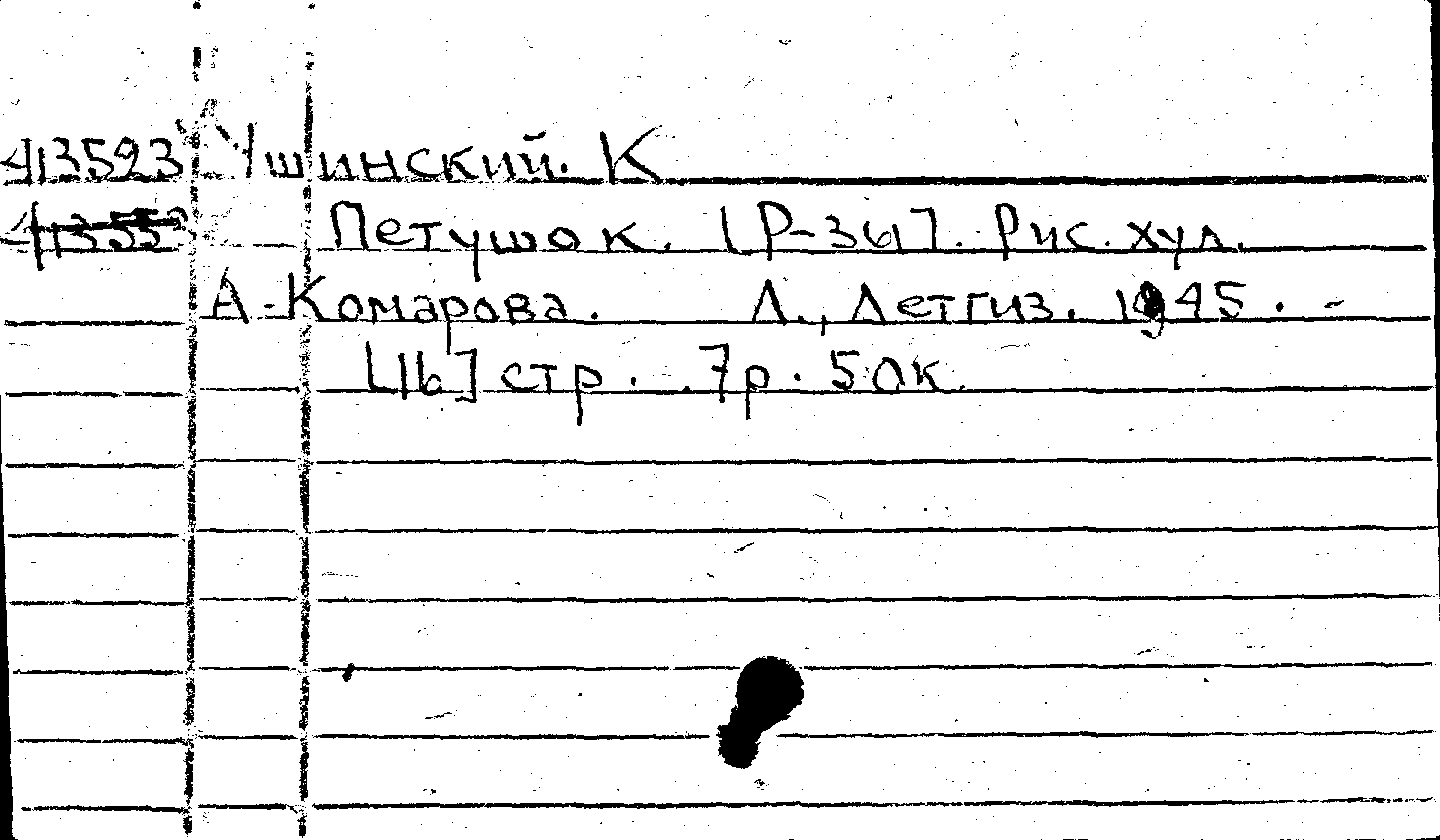 413523 Ушинский. К
Петушок. [Р-зы]. Рис. худ.
А. Комарова. Л., Детгиз. 1945. -
[16] стр. 7р. 50к.